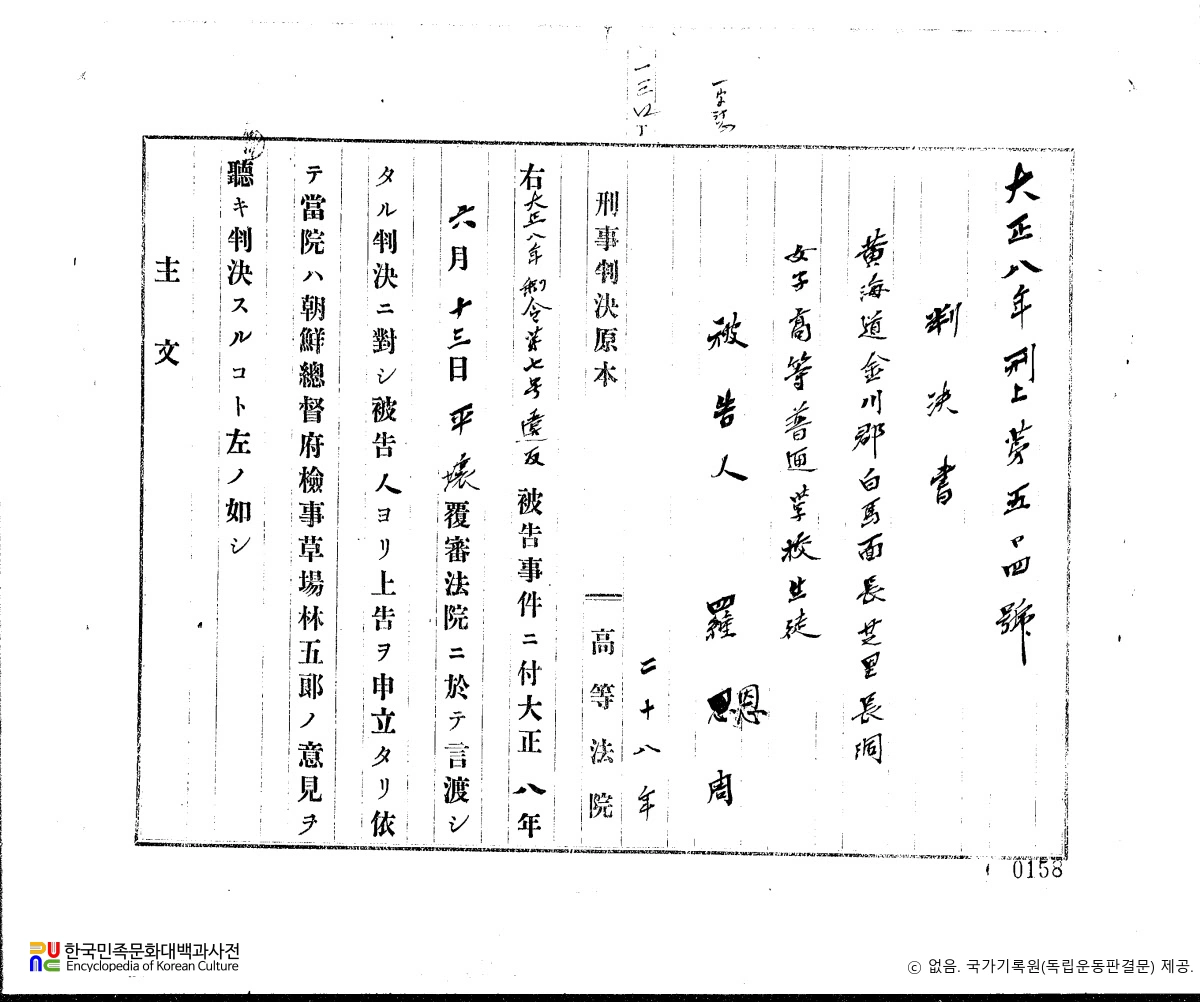 大正八年刑上第五〇四號
判決書
黃海道金川郡白馬面長芝里長洞
女子高等普通學校生徒
被告人 羅恩周
二十八年
刑事判決原本 高等法院
右大正八年制令第七号違反被告事件ニ付大正八年
六月十三日平壤覆審法院ニ於テ言渡シ
タル判決ニ對シ被告人ヨリ上告ヲ申立タリ依
テ當院ハ朝鮮總督府檢事草場林五郎ノ意見ヲ
聽キ判決スルコト左ノ如シ
主文
0158
한국민족문화대백과사전
Encyclopedia of Korean Culture
ⓒ 없음. 국가기록원(독립운동판결문) 제공.